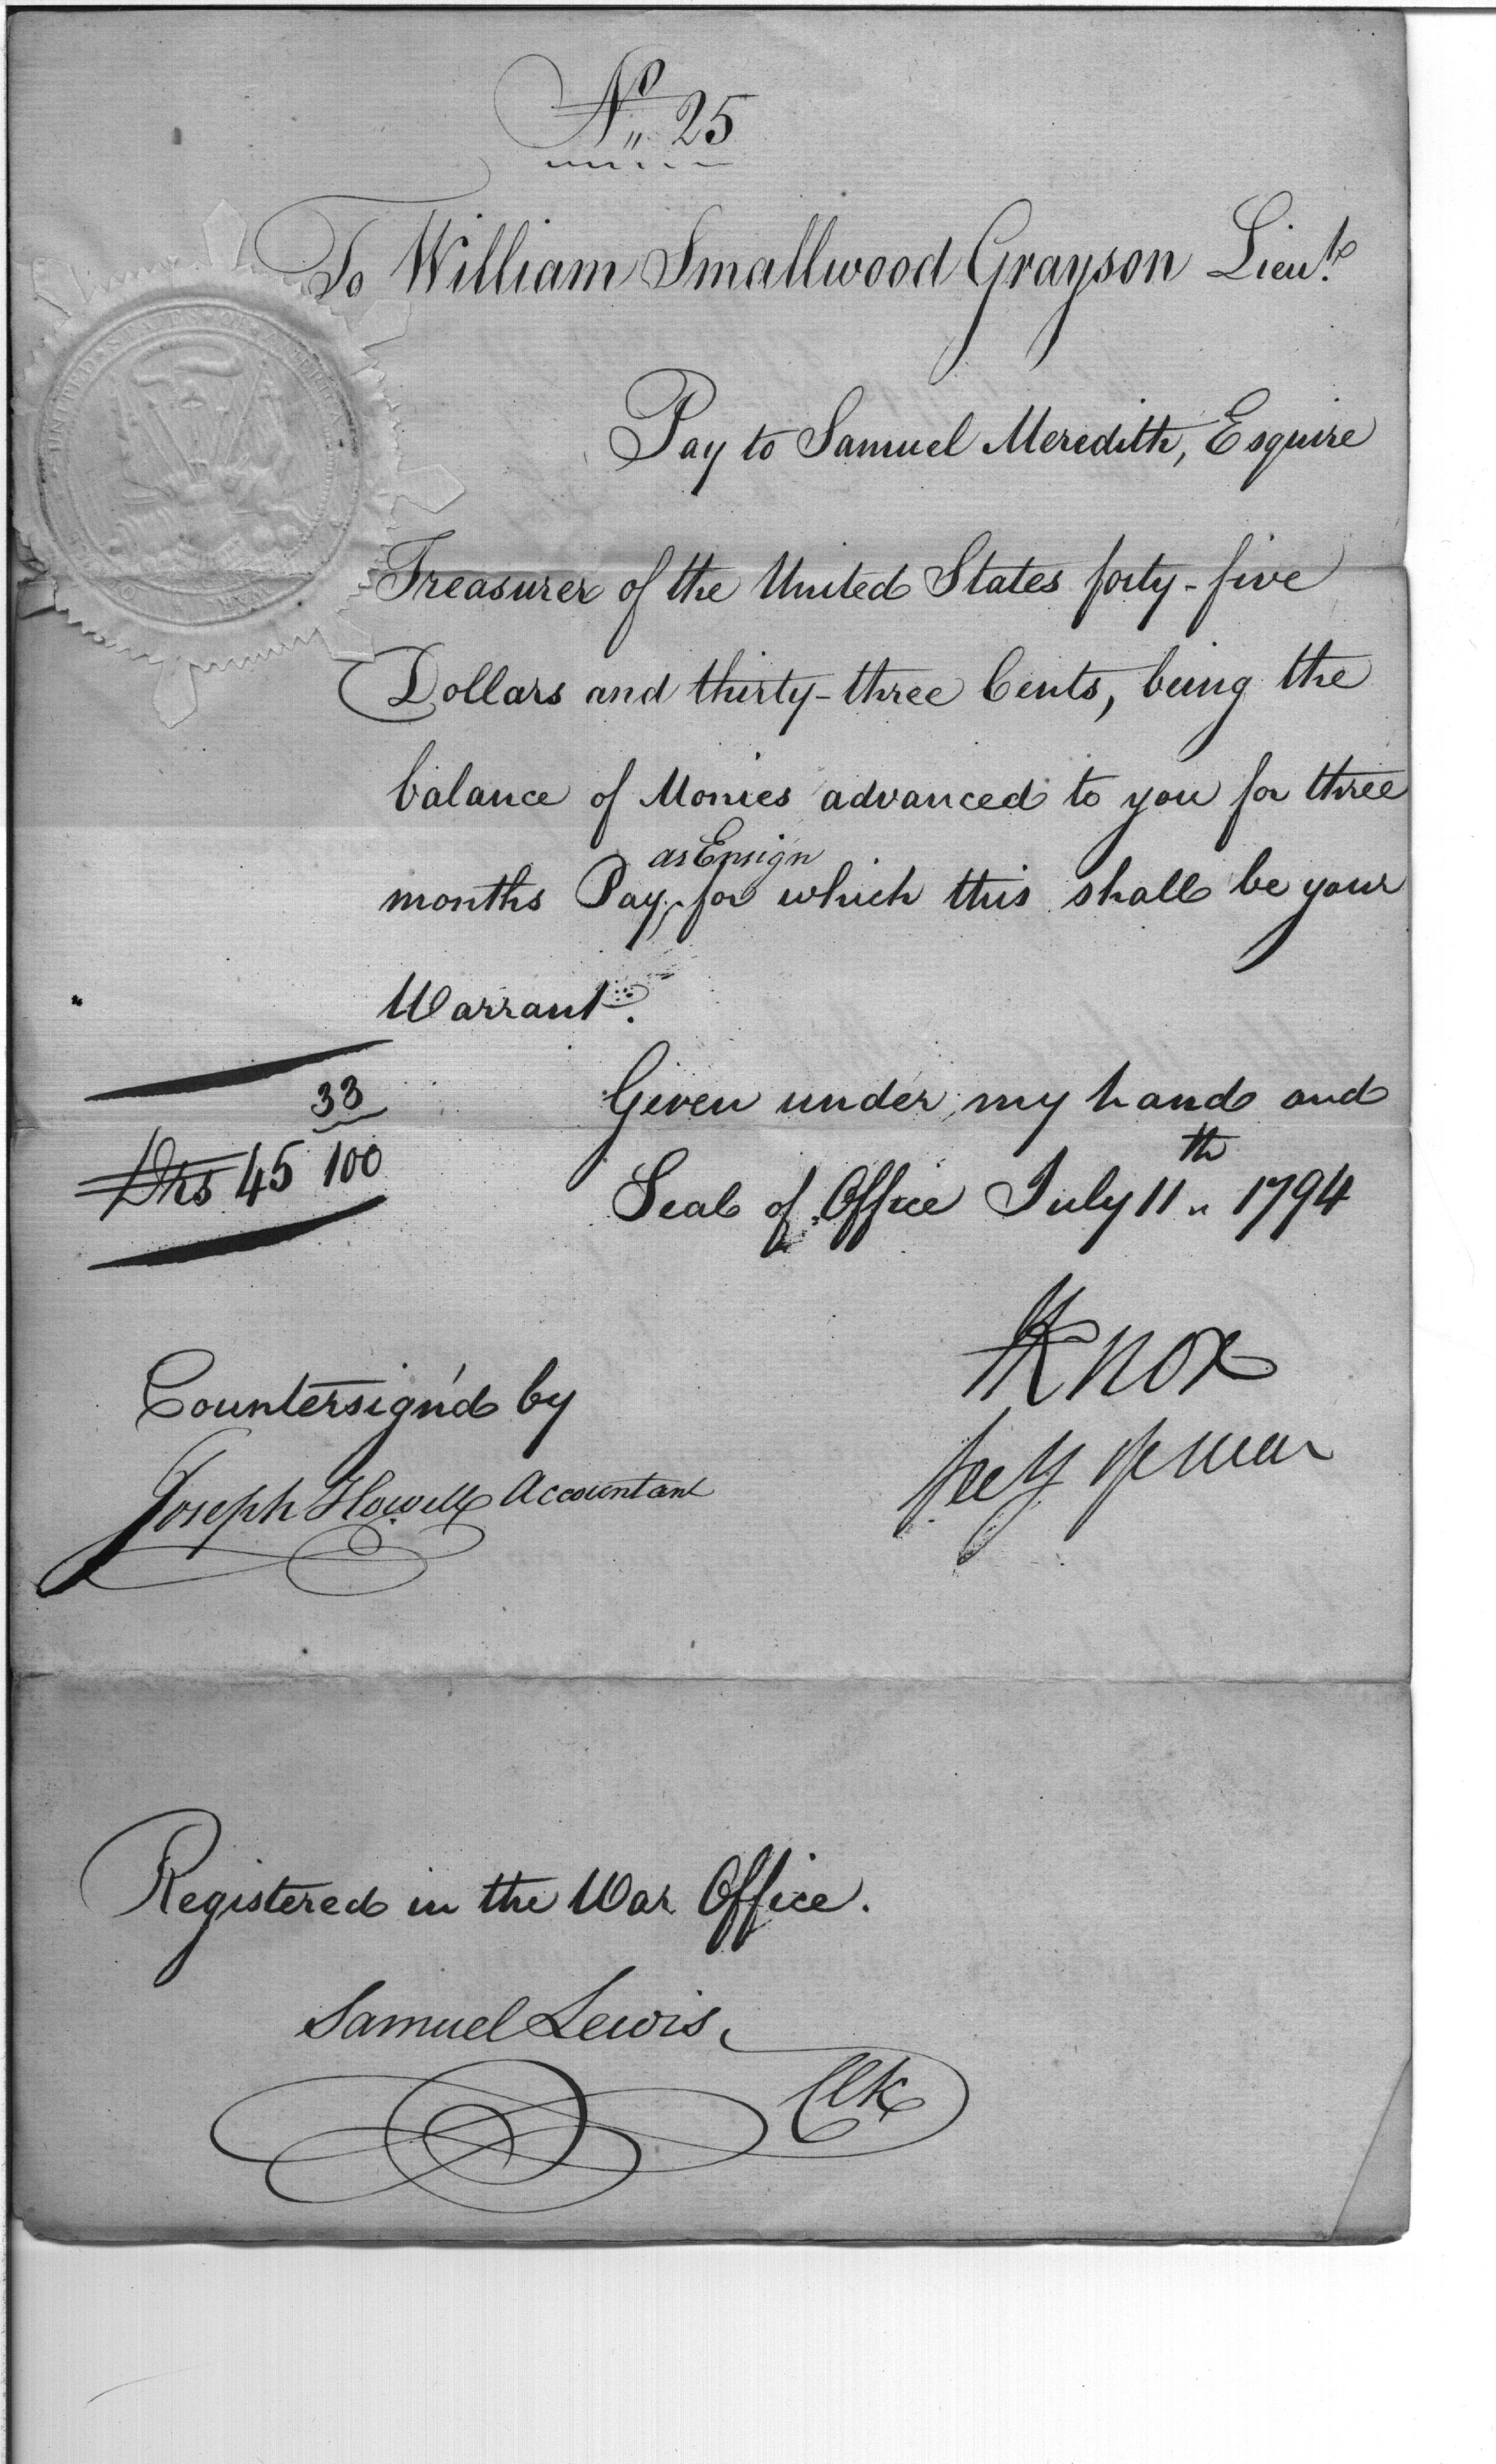 No. 25
To William Smallwood Grayson Lieut.
UNITED STATES OF AMERICA
WAR OFFICE
Pay to Samuel Meredith, Esquire
Treasurer of the United States forty-five
Dollars and thirty-three Cents, being the
balance of Monies advanced to you for three
as Ensign
months Pay, for which this shall be your
Warrant.
33
Drs 45 100
Given under my hand and
Seal of Office July 11th 1794
HKnox
Secy of War
Countersign'd by
Joseph Howell Accountant
Registered in the War Office.
Samuel Lewis,
Clk